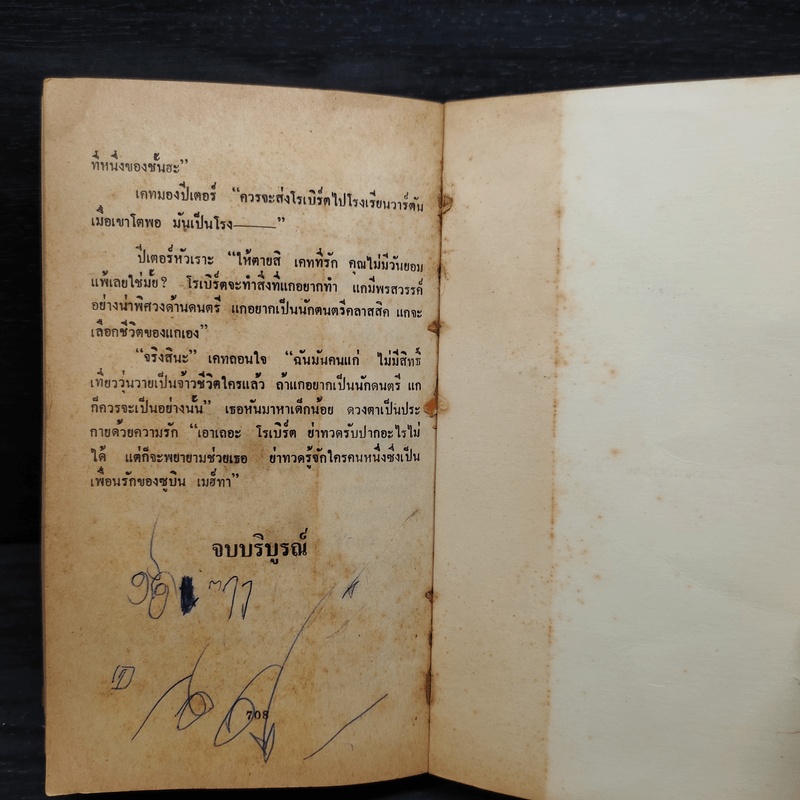 ที่หนึ่งของชั้นฮะ”
เคทมองปีเตอร์ “ควรจะส่งโรเบิร์ตไปโรงเรียนวาร์ตัน
เมื่อเขาโตพอ มันเป็นโรง———”
ปีเตอร์หัวเราะ “ให้ตายสิ เคทที่รัก คุณไม่มีวันยอม
แพ้เลยใช่มั้ย? โรเบิร์ตจะทำสิ่งที่แกอยากทำ แกมีพรสวรรค์
อย่างน่าพิศวงด้านดนตรี แกอยากเป็นนักดนตรีคลาสสิค แกจะ
เลือกชีวิตของแกเอง”
“จริงสินะ” เคทถอนใจ “ฉันมันคนแก่ ไม่มีสิทธิ์
เที่ยววุ่นวายเป็นจ้าวชีวิตใครแล้ว ถ้าแกอยากเป็นนักดนตรี แก
ก็ควรจะเป็นอย่างนั้น” เธอหันมาหาเด็กน้อย ดวงตาเป็นประ
กายด้วยความรัก “เอาเถอะ โรเบิร์ต ย่าทวดรับปากอะไรไม่
ได้ แต่ก็จะพยายามช่วยเธอ ย่าทวดรู้จักใครคนหนึ่งซึ่งเป็น
เพื่อนรักของซูบิน เมฮ์ทา”
จบบริบูรณ์
708